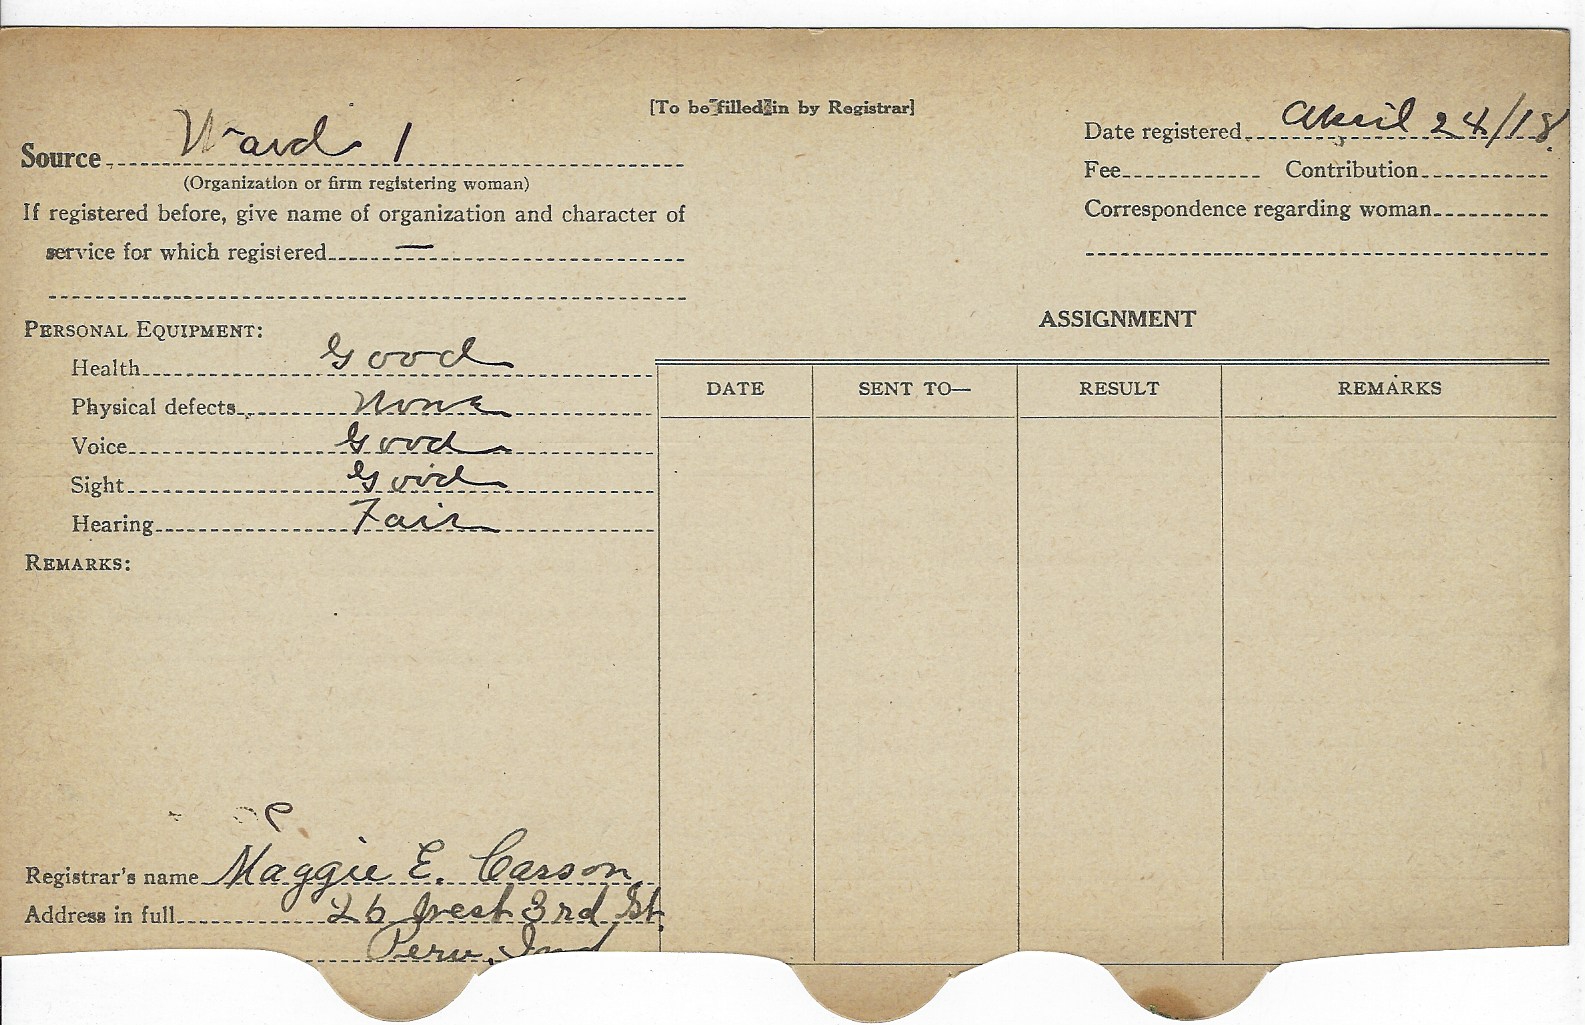 [To be filled in by Registrar]
Source Ward 1
(Organization or firm registering woman)
If registered before, give name of organization and character of
service for which registered —
Date registered April 24/18.
Fee Contribution
Correspondence regarding woman
PERSONAL EQUIPMENT:
Health Good
Physical defects None
Voice Good
Sight Good
Hearing Fair
REMARKS:
Registrar's name Maggie E. Carson
Address in full 26 West 3rd St.
Peru, Ind
ASSIGNMENT
DATE SENT TO— RESULT REMARKS